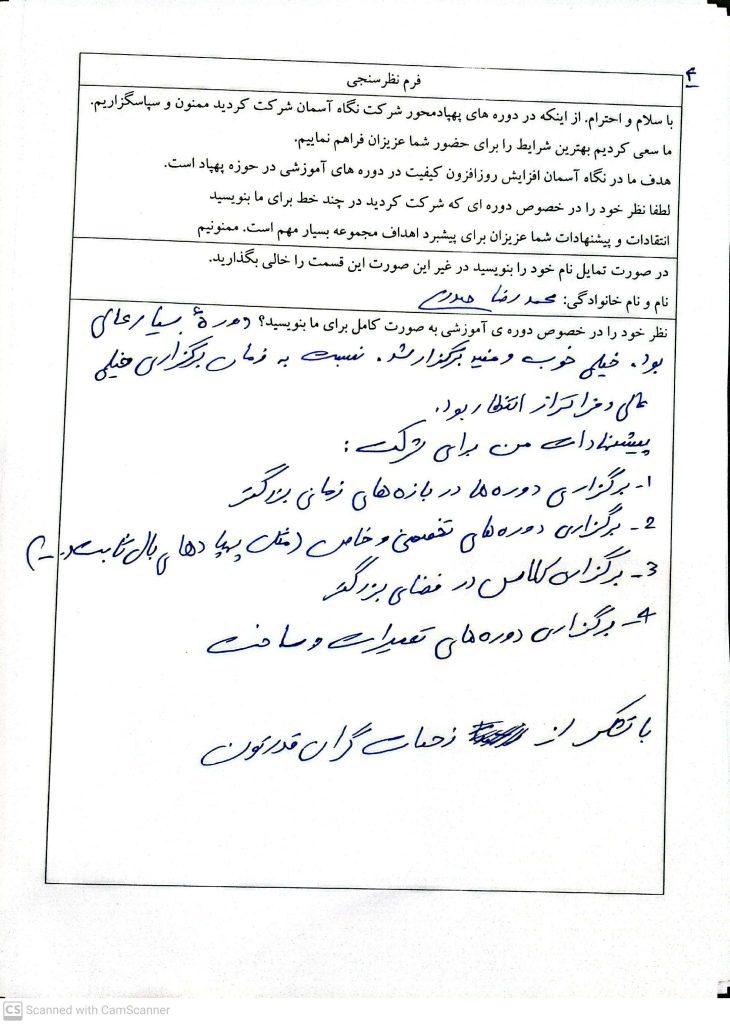 ۴
فرم نظرسنجی
با سلام و احترام. از اینکه در دوره های پهپادمحور شرکت نگاه آسمان شرکت کردید ممنون و سپاسگزاریم.
ما سعی کردیم بهترین شرایط را برای حضور شما عزیزان فراهم نماییم.
هدف ما در نگاه آسمان افزایش روزافزون کیفیت در دوره های آموزشی در حوزه پهپاد است.
لطفا نظر خود را در خصوص دوره ای که شرکت کردید در چند خط برای ما بنویسید
انتقادات و پیشنهادات شما عزیزان برای پیشبرد اهداف مجموعه بسیار مهم است. ممنونیم
در صورت تمایل نام خود را بنویسید در غیر این صورت این قسمت را خالی بگذارید.
نام و نام خانوادگی: محمدرضا حیدری
نظر خود را در خصوص دوره ی آموزشی به صورت کامل برای ما بنویسید؟ دورهٔ بسیار عالی
بود. خیلی خوب و مفید برگزار شد. نسبت به زمان برگزاری خیلی
عالی و فراتر از انتظار بود.
پیشنهادات من برای شرکت :
1- برگزاری دوره ها در بازه های زمانی بزرگتر
2- برگزاری دوره های تخصصی و خاص (مثل پهپادهای بال ثابت و...)
3- برگزاری کلاس در فضای بزرگتر
4- برگزاری دوره های تعمیرات و ساخت
با تشکر از زحمات گران قدرتون
CS Scanned with CamScanner